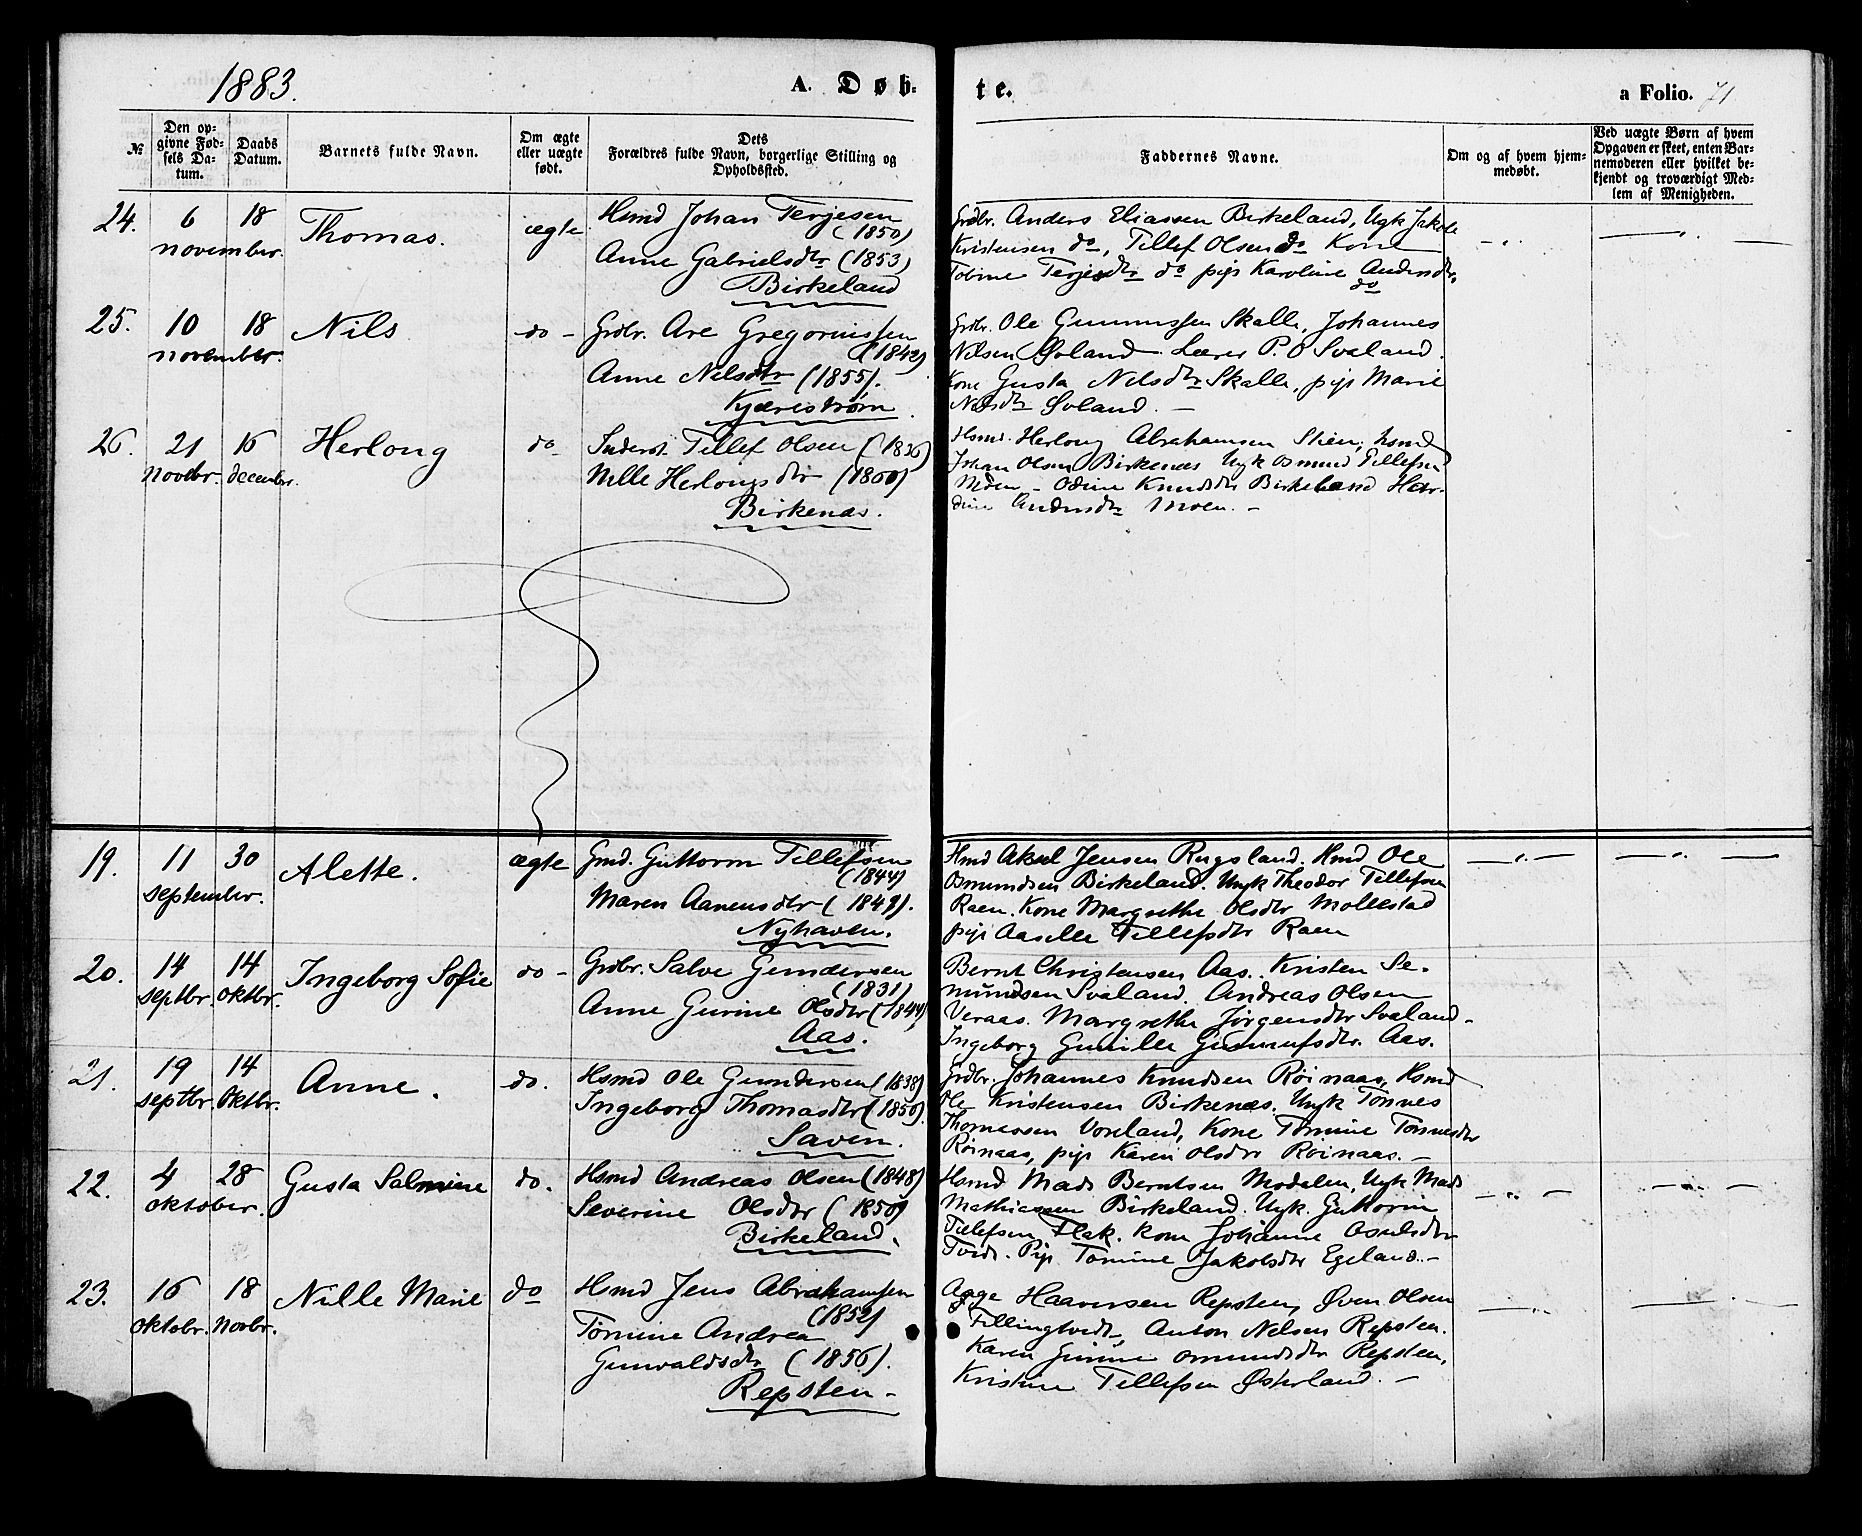 1883.
A. Døb-
te.
a Folio. 71
№
Den op-
givne Fød-
sels Da-
tum.
Daabs
Datum.
Barnets fulde Navn.
Om ægte
eller uægte
født.
Dets
Forældres fulde Navn, borgerlige Stilling og
Opholdssted.
Faddernes Navne.
Om og af hvem hjem-
medøbt.
Ved uægte Børn af hvem
Opgaven er skeet, enten Bar-
nemoderen eller hvilket be-
kjendt og troværdigt Med-
lem af Menigheden.
24.
6 18
november.
Thomas.
ægte
Hsmd Johan Terjesen
(1850)
Anne Gabrielsdtr (1853)
Birkeland
Grdbr. Anders Eliassen Birkeland, Ugk Jakob
Kristensen do, Tellef Olsen do Kone
Tobine Terjesdtr do pige Karoline Andersdtr.
do
25.
10 18
november.
Nils
do -
Grdbr. Are Gregoriussen
(1842)
Anne Nilsdtr (1855).
Kjærestrøm.
Grdbr. Ole Gunnufssen Skalle, Johannes
Nilsen Øvland. Lærer P. O Svaland.
Kone Gusta Nilsdtr Skalle, pige Marie
Nilsdtr Øvland. -
26.
21 16
Novbr. december.
Herlong
do
Inderst. Tellef Olsen (1836)
Nille Herlongsdtr
Birkenæs.
Hsmd. Herlong Abrahamsen Stien, hsmd
Johan Olsen Birkenæs Ugk Osmund Tellefsen
- Odine Knudsdtr Birkeland
Andersdtr Moen. -
19.
11 30
september.
Alette.
ægte
Gmd. Guttorm Tellefsen
(1844)
Maren Aanensdtr (1849).
Nyhaven.
Hmd Aksel Jensen Rugsland. Hmd Ole
Osmundsen Birkeland. Ungk Theodor Tellefsen
Raen. Kone Margrethe Olsdtr Mollestad
pige Aaselle Tellefsdtr Raen
20.
14 14
septbr. Oktbr.
Ingeborg Sofie
do -
Grdbr. Salve Gundersen
(1831)
Anne Gurine Olsdtr (1844)
Aas.
Bernt Christensen Aas. Kristen Se-
mundsen Svaland. Andreas Olsen
Veraas. Margrethe Jørgensdtr Svaland -
Ingeborg Gunille Gunnufsdtr. Aas.
21.
19 14
septbr. Oktbr.
Anne.
do.
Hsmd Ole Gundersen (1838)
Ingeborg Thomasdtr (1850).
Saven.
Grdbr. Johannes Knudsen Røinaas, Hsmd
Ole Kristensen Birkenæs. Ungk Tønnes
Thomassen Voreland, Kone Tomine Tønnesdtr
Røinaas, pige Karen Olsdtr Røinaas. -
22.
4 28
oktober.
Gusta Salmine
do.
Hsmd Andreas Olsen (1848)
Severine Olsdtr (1850)
Birkeland.
Hsmd Mads Berntsen Modalen, Ugk Mads
Mathiassen Birkeland. Ugk. Guttorm
Tellefsen Flak. Kone Johanne
Pige Tomine Jakobsdtr Egeland. -
23.
16 18
oktobr. Novbr.
Nille Marie
do
Hsmd Jens Abrahamsen
(1852)
Tomine Andrea
Gunvaldsdtr (1856).
Repsten -
Aage Haaversen Repsten, Øven Olsen
Fillingtvedt, Anton Nelsen Repsten.
Karen Gurine Omundsdtr Repsten,
Kristine Tellefsen Østerland. -